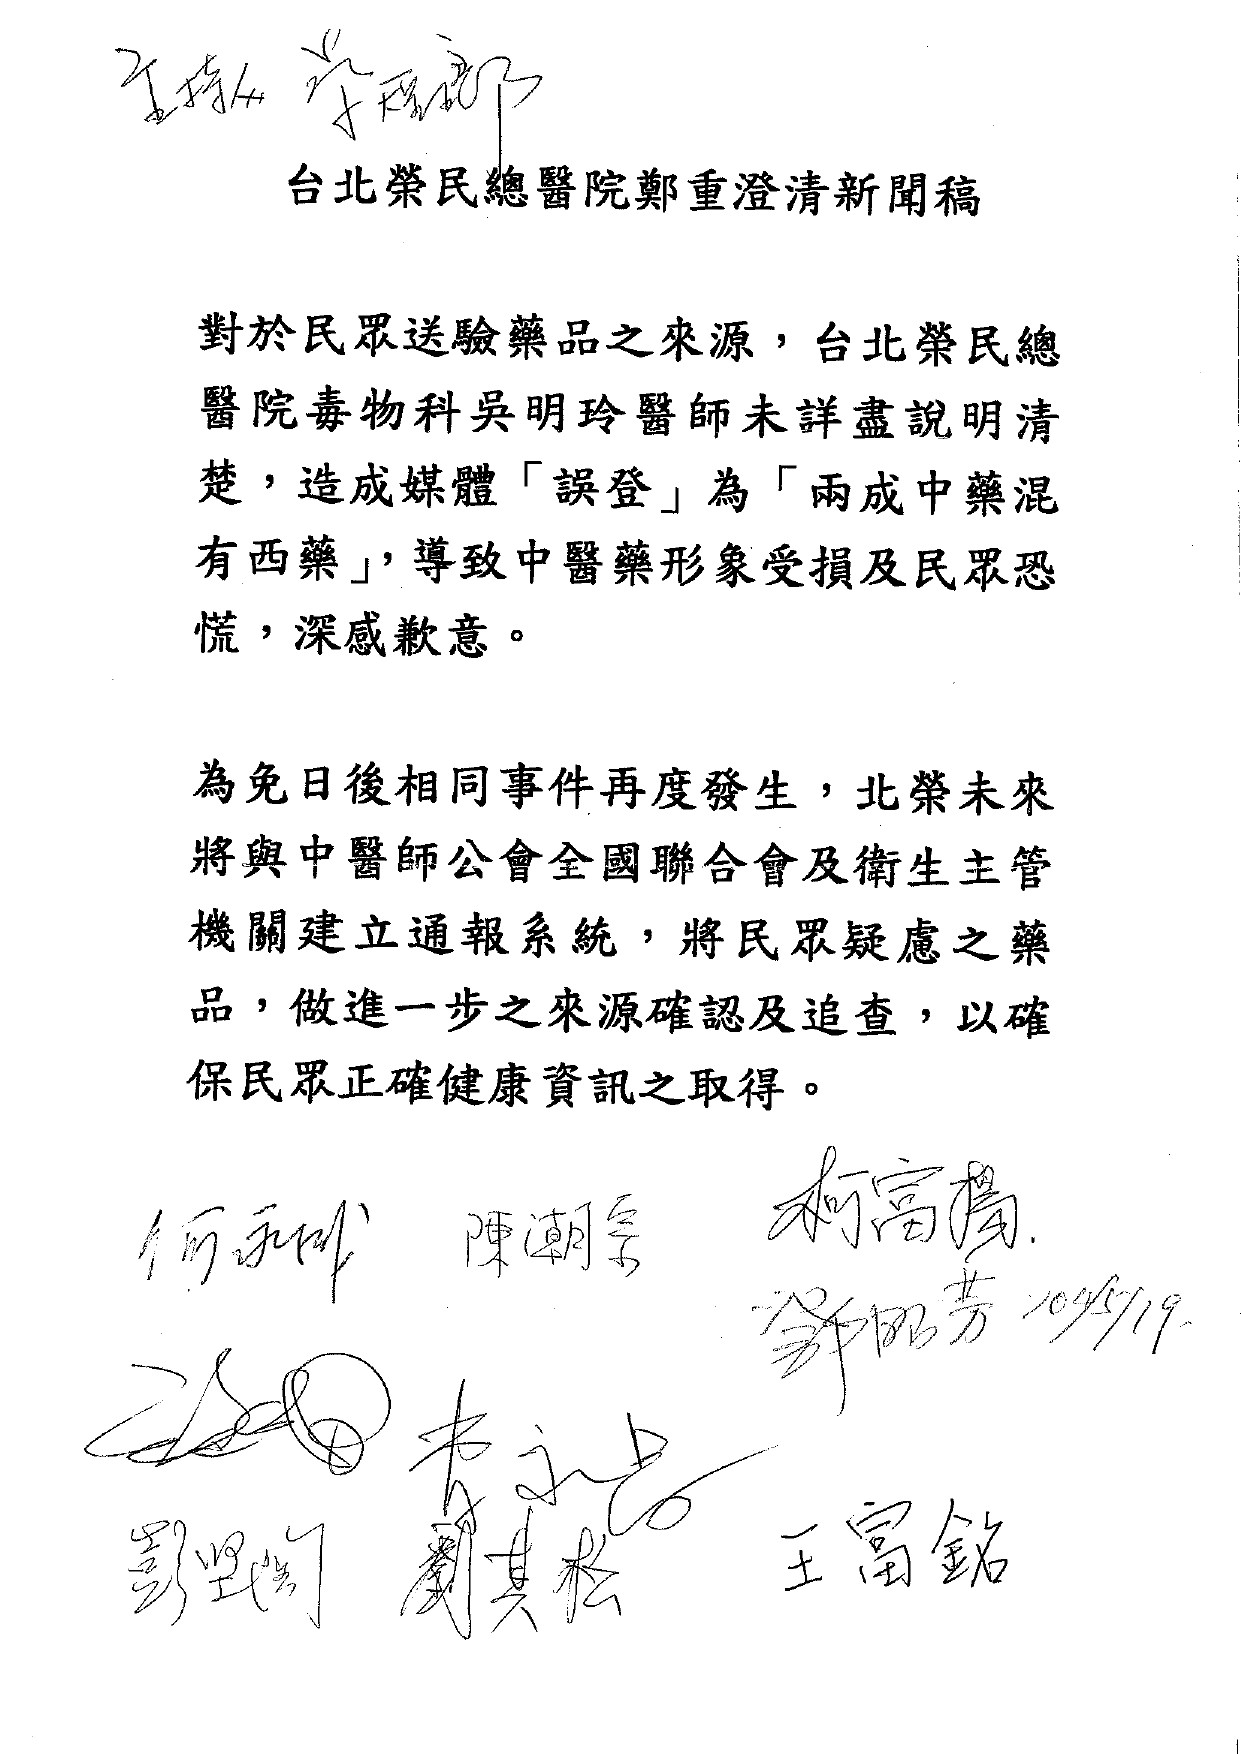 主持人
台北榮民總醫院鄭重澄清新聞稿
對於民眾送驗藥品之來源，台北榮民總
醫院毒物科吳明玲醫師未詳盡說明清
楚，造成媒體「誤登」為「兩成中藥混
有西藥」，導致中醫藥形象受損及民眾恐
慌，深感歉意。
為免日後相同事件再度發生，北榮未來
將與中醫師公會全國聯合會及衛生主管
機關建立通報系統，將民眾疑慮之藥
品，做進一步之來源確認及追查，以確
保民眾正確健康資訊之取得。
何永成 陳潮宗 柯富揚
鄧昭芳 104/5/19
彭堅陶 劉其松 王富銘